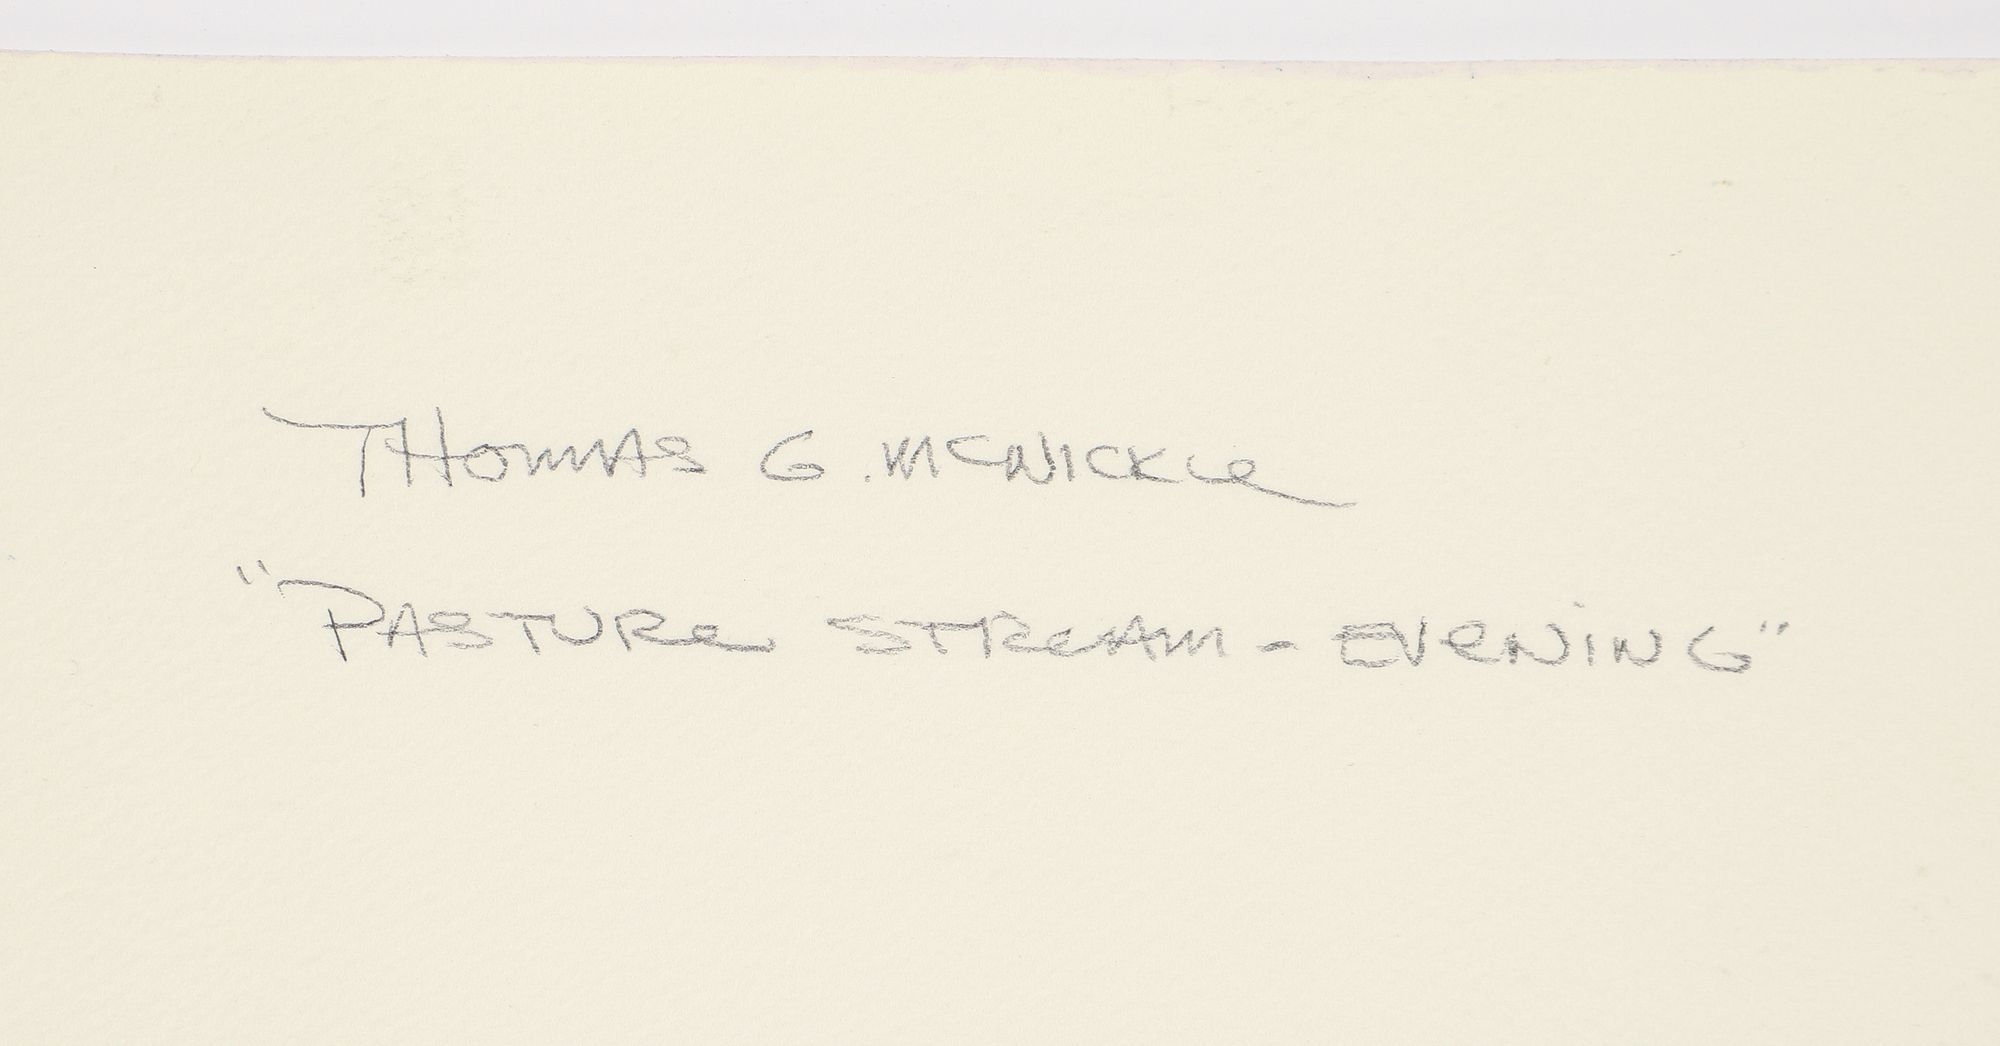 Thomas G. McNickle
"Pasture Stream - Evening"